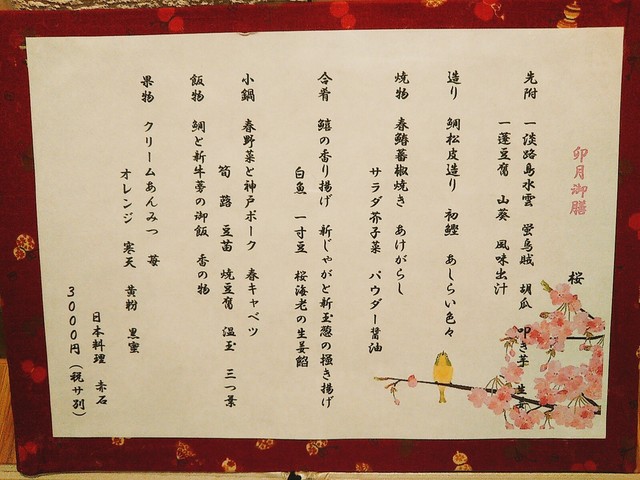 卯月御膳
桜
先附 一淡路島水雲 蛍烏賊 胡瓜 叩き芋 生姜
一蓬豆腐 山葵 風味出汁
造り 鯛松皮造り 初鰹 あしらい色々
焼物 春鰆蕃椒焼き あけがらし
サラダ芥子菜 パウダー醤油
合肴 鱚の香り揚げ 新じゃがと新玉葱の掻き揚げ
白魚 一寸豆 桜海老の生姜餡
小鍋 春野菜と神戸ポーク 春キャベツ
筍 蕗 豆苗 焼豆腐 温玉 三つ葉
飯物 鯛と新牛蒡の御飯 香の物
果物 クリームあんみつ 苺
オレンジ 寒天 黄粉 黒蜜
日本料理 赤石
3000円(税サ別)